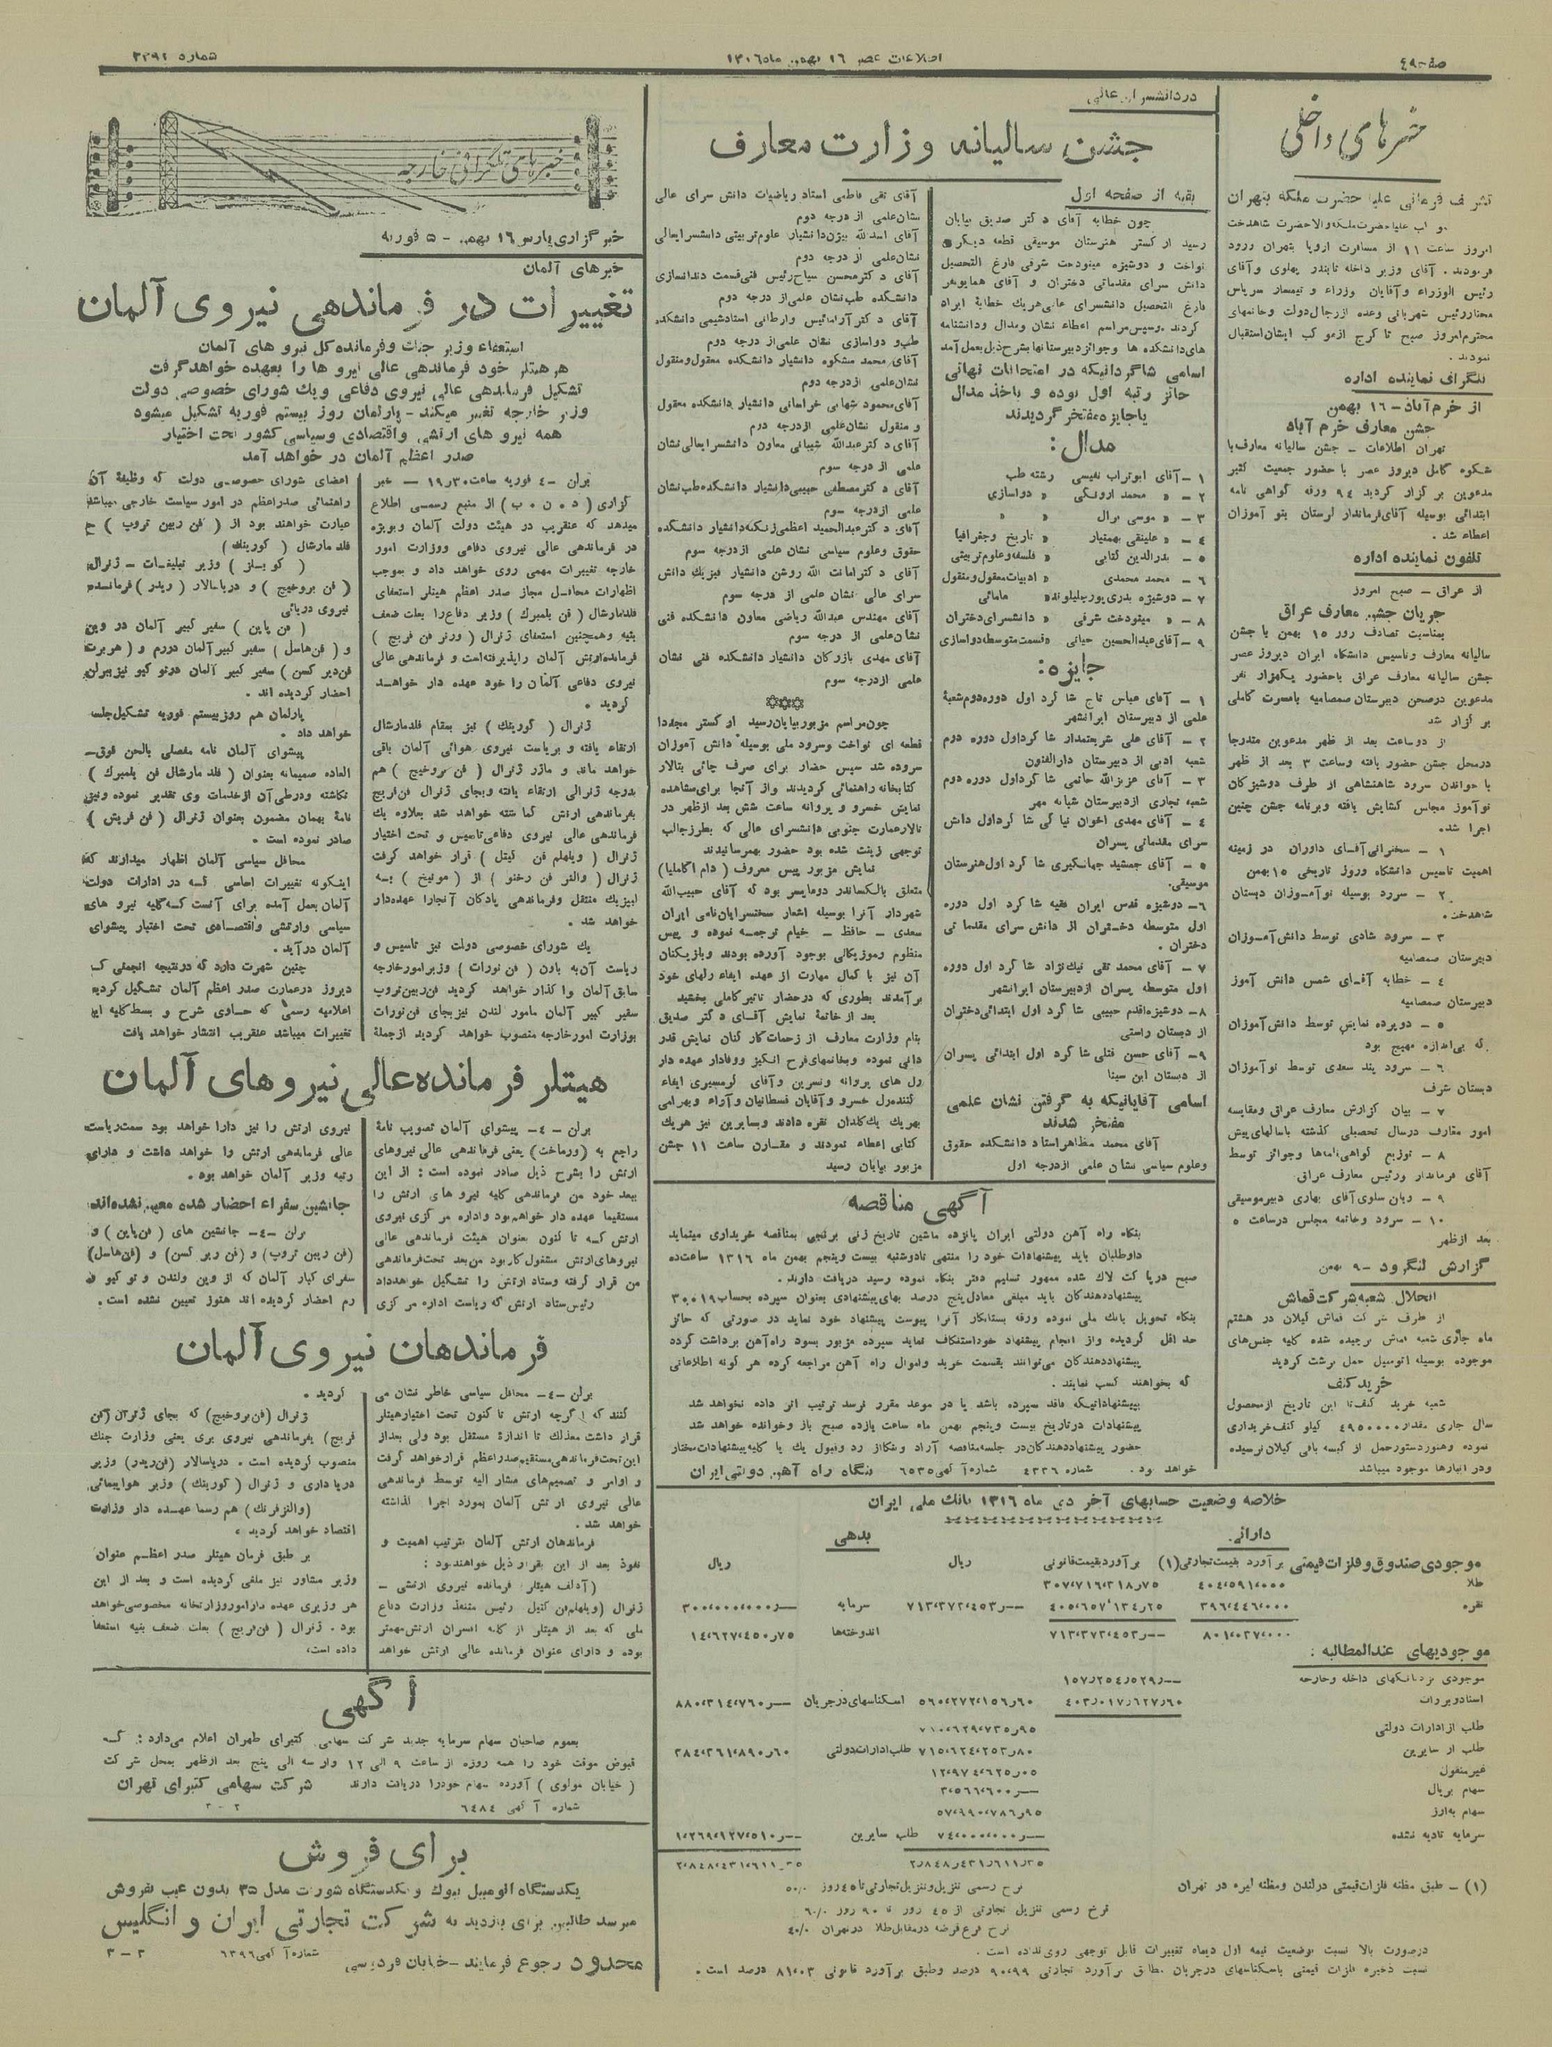 اطلاعات عصر ۱۶ بهمن ماه ۱۳۱۶
خبرهای داخلی
تشریف فرمائی علیا حضرت ملکه بتهران
امروز ساعت ۱۱ از مسافرت اروپا بتهران ورود
فرمودند. آقای وزیر داخله تا بندر پهلوی و آقای
رئیس الوزراء و آقایان وزراء و تیمسار سرپاس
مختار رئیس شهربانی و عده از رجال دولت و خانمهای
محترم امروز صبح تا کرج از موکب ایشان استقبال
نمودند.
تلگرای نماینده اداره
از خرم آباد - ۱۶ بهمن
جشن معارف خرم آباد
تهران اطلاعات - جشن سالیانه معارف با
شکوه کامل دیروز عصر با حضور جمعیت کثیر
مدعوین برگزار گردید ۹۴ ورقه گواهی نامه
ابتدائی بوسیله آقای فرماندار لرستان بنو آموزان
اعطاء شد.
تلفون نماینده اداره
از عراق - صبح امروز
جریان جشن معارف عراق
بمناسبت تصادف روز ۱۵ بهمن با جشن
سالیانه معارف و تاسیس دانشگاه ایران دیروز عصر
جشن سالیانه معارف عراق با حضور یکهزار نفر
مدعوین در صحن دبیرستان صمصامیه با مسرت کاملی
برگزار شد
از دو ساعت بعد از ظهر مدعوین متدرجا
در محل جشن حضور یافته و ساعت ۳ بعد از ظهر
با خواندن سرود شاهنشاهی از طرف دوشیزگان
نوآموز مجلس گشایش یافته و برنامه جشن چنین
اجرا شد.
۱ - سخنرانی آقای داوران در زمینه
اهمیت تاسیس دانشگاه و روز تاریخی ۱۵ بهمن
۲ - سرود بوسیله نوآموزان دبستان
شاهدخت.
۳ - سرود شادی توسط دانش آموزان
دبیرستان صمصامیه
۴ - خطابه آقای شمس دانش آموز
دبیرستان صمصامیه
۵ - دو پرده نمایش توسط دانش آموزان
که بی اندازه مهیج بود
۶ - سرود پند سعدی توسط نوآموزان
دبستان شرف
۷ - بیان گزارش معارف عراق و مقایسه
امور معارف در سال تحصیلی گذشته با سالهای پیش
۸ - توزیع گواهی نامه‌ها و جوائز توسط
آقای فرماندار و رئیس معارف عراق
۹ - ویان سلوی آقای بهاری دبیر موسیقی
۱۰ - سرود و خاتمه مجلس در ساعت ۵
بعد از ظهر
گزارش لنگرود - ۹ بهمن
انحلال شعبه شرکت قماش
از طرف شرکت قماش گیلان در هشتم
ماه جاری شعبه قماش برچیده شده کلیه جنس‌های
موجوده بوسیله اتومبیل حمل برشت گردید
خرید کنف
شعبه خرید کنف تا این تاریخ از محصول
سال جاری مقدار ۴۹۵۰۰۰۰ کیلو کنف خریداری
نموده و هنوز دستور حمل از کیسه بافی گیلان نرسیده
و در انبارها موجود میباشد
در دانشسرای عالی
جشن سالیانه وزارت معارف
بقیه از صفحه اول
چون خطابه آقای دکتر صدیق بپایان
رسید ارکستر هنرستان موسیقی قطعه دیگری
نواخت و دوشیزه مینودخت شرفی فارغ التحصیل
دانش سرای مقدماتی دختران و آقای همایونفر
فارغ التحصیل دانشسرای عالی هریک خطابهٔ ایراد
کردند. و سپس مراسم اعطاء نشان و مدال و دانشنامه
های دانشکده ها و جوائز دبیرستانها بشرح ذیل بعمل آمد
اسامی شاگردانیکه در امتحانات نهائی
حائز رتبه اول بوده و باخذ مدال
یا جایزه مفتخر گردیدند
مدال:
۱ - آقای ابوتراب نفیسی رشته طب
۲ - « محمد ارونکی « دواسازی
۳ - « موسی برال « «
۴ - « علینقی بهمنیار « تاریخ و جغرافیا
۵ - « بدرالدین کتابی « فلسفه و علوم تربیتی
۶ - « محمد محمدی « ادبیات معقول و منقول
۷ - دوشیزه بدری پور جلیلوند « مامائی
۸ - « مینودخت شرفی « دانشسرای دختران
۹ - آقای عبدالحسین حیاتی « قسمت متوسطه دواسازی
جایزه:
۱ - آقای عباس تاج شاگرد اول دوره دوم شعبهٔ
علمی از دبیرستان ایرانشهر
۲ - آقای علی شریعتمدار شاگرد اول دوره دوم
شعبه ادبی از دبیرستان دارالفنون
۳ - آقای عزیزالله حاتمی شاگرد اول دوره دوم
شعبه تجاری از دبیرستان شبانه مهر
۴ - آقای مهدی اخوان نیاکی شاگرد اول دانش
سرای مقدماتی پسران
۵ - آقای جمشید جهانگیری شاگرد اول هنرستان
موسیقی.
۶ - دوشیزه قدس ایران فقیه شاگرد اول دوره
اول متوسطه دختران از دانش سرای مقدماتی
دختران.
۷ - آقای محمد تقی نیک نژاد شاگرد اول دوره
اول متوسطه پسران از دبیرستان ایرانشهر
۸ - دوشیزه اقدم حبیبی شاگرد اول ابتدائی دختران
از دبستان راستی
۹ - آقای حسن فتلی شاگرد اول ابتدائی پسران
از دبستان ابن سینا
اسامی آقایانیکه به گرفتن نشان علمی
مفتخر شدند
آقای محمد مظاهر استاد دانشکده حقوق
و علوم سیاسی نشان علمی از درجه اول
آقای تقی فاطمی استاد ریاضیات دانش سرای عالی
نشان علمی از درجه دوم
آقای اسدالله بیژن دانشیار علوم تربیتی دانشسرایعالی
نشان علمی از درجه دوم
آقای دکتر محسن سیاح رئیس فنی قسمت دندانسازی
دانشکده طب نشان علمی از درجه دوم
آقای دکتر آرمائیس وارطانی استاد شیمی دانشکده
طب و دواسازی نشان علمی از درجه دوم
آقای محمد مشکوه دانشیار دانشکده معقول و منقول
نشان علمی از درجه دوم
آقای محمود شهابی خراسانی دانشیار دانشکده معقول
و منقول نشان علمی از درجه دوم
آقای دکتر عبدالله شیبانی معاون دانشسرایعالی نشان
علمی از درجه سوم
آقای دکتر مصطفی حبیبی دانشیار دانشکده طب نشان
علمی از درجه سوم
آقای دکتر عبدالحمید اعظمی زنگنه دانشیار دانشکده
حقوق و علوم سیاسی نشان علمی از درجه سوم
آقای دکتر امانت الله روشن دانشیار فیزیک دانش
سرای عالی نشان علمی از درجه سوم
آقای مهندس عبدالله ریاضی معاون دانشکده فنی
نشان علمی از درجه سوم
آقای مهدی بازرگان دانشیار دانشکده فنی نشان
علمی از درجه سوم
چون مراسم مزبور بپایان رسید ارکستر مجددا
قطعه ای نواخت و سرود ملی بوسیله دانش آموزان
سروده شد سپس حضار برای صرف چائی بتالار
کتابخانه راهنمائی گردیدند و از آنجا برای مشاهده
نمایش خسرو و پروانه ساعت شش بعد از ظهر در
تالار عمارت جنوبی دانشسرای عالی که بطرز جالب
توجهی زینت شده بود حضور بهمرسانیدند
نمایش مزبور پیس معروف (دام اکاملیا)
متعلق بالکساندر دوما پسر بود که آقای حبیب الله
شهردار آنرا بوسیله اشعار سخنسرایان نامی ایران
سعدی - حافظ - خیام ترجمه نموده و پیس
منظوم و موزیکالی بوجود آورده بودند و بازیکنان
آن نیز با کمال مهارت از عهده ایفاء رلهای خود
برآمدند بطوری که در حضار تاثیر کاملی بخشید
بعد از خاتمهٔ نمایش آقای دکتر صدیق
بنام وزارت معارف از زحمات کارکنان نمایش قدر
دانی نموده و بخانمهای فرح انگیز و وفادار عهده دار
رل های پروانه و نسرین و آقای گرمسیری ایفاء
کننده رل خسرو و آقایان فسطانیان و آراء و بهرامی
بهریک یک گلدان نقره دادند و بسایرین نیز هریک
کتابی اعطاء نمودند و مقارن ساعت ۱۱ جشن
مزبور بپایان رسید
آگهی مناقصه
بنگاه راه آهن دولتی ایران پانزده ماشین تاریخ زنی برنجی بمناقصه خریداری مینماید
داوطلبان باید پیشنهادات خود را منتهی تا دوشنبه بیست و پنجم بهمن ماه ۱۳۱۶ ساعت ده
صبح در پاکت لاک شده ممهور تسلیم دفتر بنگاه نموده رسید دریافت دارند.
پیشنهاد دهندگان باید مبلغی معادل پنج درصد بهای پیشنهادی بعنوان سپرده بحساب ۳۰۰۱۹
بنگاه تحویل بانک ملی نموده ورقه بستانکار آنرا پیوست پیشنهاد خود نماید در صورتی که حائز
حد اقل گردیده و از انجام پیشنهاد خود استنکاف نماید سپرده مزبور بسود راه آهن برداشت گردد
پیشنهاد دهندگان می‌توانند بقسمت خرید و اموال راه آهن مراجعه کرده هر گونه اطلاعاتی
که بخواهند کسب نمایند.
بپیشنهاداتیکه فاقد سپرده باشد یا در موعد مقرر نرسد ترتیب اثر داده نخواهد شد
پیشنهادات در تاریخ بیست و پنجم بهمن ماه ساعت یازده صبح باز و خوانده خواهد شد
حضور پیشنهاد دهندگان در جلسه مناقصه آزاد و بنگاه در رد و قبول یک یا کلیه پیشنهادات مختار
خواهد بود. شماره ۴۳۳۶ شماره آگهی ۶۵۳۵ بنگاه راه آهن دولتی ایران
خلاصه وضعیت حسابهای آخر دی ماه ۱۳۱۶ بانک ملی ایران
دارائی بدهی
موجودی صندوق و فلزات قیمتی برآورد بقیمت تجارتی (۱) برآورد بقیمت قانونی ریال ریال
طلا ۴۰۴،۵۹۱،۰۰۰ ۳۰۷،۷۱۶،۳۱۸ر۷۵
نقره ۳۹۶،۴۴۶،۰۰۰ ۴۰۵،۶۵۷،۱۳۴ر۲۵ ۷۱۳،۳۷۳،۴۵۳ر-- سرمایه ۳۰۰،۰۰۰،۰۰۰ر--
۸۰۱،۰۳۷،۰۰۰ ۷۱۳،۳۷۳،۴۵۳ر-- اندوخته‌ها ۱۴،۶۲۷،۴۵۰ر۷۵
موجودیهای عندالمطالبه:
موجودی نزد بانکهای داخله و خارجه ۱۵۷،۲۵۴،۵۲۹ر--
اسناد و بروات ۴۰۳،۰۱۷،۶۲۷ر۶۰ ۵۶۰،۲۷۲،۱۵۶ر۶۰ اسکناسهای در جریان ۸۸۰،۳۱۴،۷۶۰ر--
طلب از ادارات دولتی ۷۱۰،۶۲۹،۷۳۵ر۹۵
طلب از سایرین ۷۱۵،۶۲۴،۲۵۳ر۸۰ طلب ادارات دولتی ۳۸۴،۳۶۱،۸۹۰ر۶۰
غیر منقول ۱۲،۹۷۴،۶۲۵ر۰۵
سهام بریال ۳،۵۶۶،۶۰۰ر--
سهام به ارز ۵۷،۹۹۰،۷۸۶ر۹۵
سرمایه تادیه نشده ۷۴،۰۰۰،۰۰۰ر-- طلب سایرین ۱،۲۶۹،۱۲۷،۵۱۰ر--
۲،۸۴۸،۴۳۱،۶۱۱ر۳۵ ۲،۸۴۸،۴۳۱،۶۱۱ر۳۵
(۱) - طبق مظنه فلزات قیمتی در لندن و مظنه لیره در تهران
نرخ رسمی تنزیل و تنزیل تجارتی تا ۴۵ روز ۵۰/۰
نرخ رسمی تنزیل تجارتی از ۴۵ روز تا ۹۰ روز ۶۰/۰
نرخ فرع قرضه در مقابل طلا در تهران ۴۰/۰
در صورت بالا نسبت بوضعیت نیمه اول دیماه تغییرات قابل توجهی روی نداده است.
نسبت ذخیره فلزات قیمتی باسکناسهای در جریان مطابق برآورد تجارتی ۹۰،۹۹ درصد و طبق برآورد قانونی ۸۱،۰۳ درصد است.
خبرهای تلگرافی خارجه
خبرگزاری پارس ۱۶ بهمن - ۵ فوریه
خبرهای آلمان
تغییرات در فرماندهی نیروی آلمان
استعفاء وزیر جنگ و فرمانده کل نیروهای آلمان
هر هیتلر خود فرماندهی عالی نیروها را بعهده خواهد گرفت
تشکیل فرماندهی عالی نیروی دفاعی و یک شورای خصوصی دولت
وزیر خارجه تغییر میکند - پارلمان روز بیستم فوریه تشکیل میشود
همه نیروهای ارتشی و اقتصادی و سیاسی کشور تحت اختیار
صدر اعظم آلمان در خواهد آمد
برلن - ۴ فوریه ساعت ۱۹ر۳۰ - خبر
گزاری (د.ن.ب) از منبع رسمی اطلاع
میدهد که عنقریب در هیئت دولت آلمان و بویژه
در فرماندهی عالی نیروی دفاعی و وزارت امور
خارجه تغییرات مهمی روی خواهد داد و بموجب
اظهارات محافل مجاز صدر اعظم هیتلر استعفای
فلدمارشال (فن بلمبرک) وزیر دفاع را بعلت ضعف
بنیه و همچنین استعفای ژنرال (ورنر فن فریچ)
فرمانده ارتش آلمان را پذیرفته است و فرماندهی عالی
نیروی دفاعی آلمان را خود عهده دار خواهند
گردید.
ژنرال (گورینک) نیز بمقام فلدمارشال
ارتقاء یافته و بریاست نیروی هوائی آلمان باقی
خواهد ماند و ماژر ژنرال (فن بروخیچ) هم
بدرجه ژنرالی ارتقاء یافته و بجای ژنرال فن فریچ
بفرماندهی ارتش گماشته خواهد شد بعلاوه یک
فرماندهی عالی نیروی دفاعی تاسیس و تحت اختیار
ژنرال (ویلهلم فن کیتل) قرار خواهد گرفت
ژنرال (والتر فن رخنو) از (مونیخ) به
لیپزیک منتقل و فرماندهی پادگان آنجا را عهده دار
خواهد شد.
یک شورای خصوصی دولت نیز تاسیس و
ریاست آن به بارن (فن نورات) وزیر امور خارجه
سابق آلمان واگذار خواهد گردید فن ریبن تروپ
سفیر کبیر آلمان مامور لندن نیز بجای فن نورات
بوزارت امور خارجه منصوب خواهد گردید از جملهٔ
اعضای شورای خصوصی دولت که وظیفهٔ آن
راهنمائی صدر اعظم در امور سیاست خارجی میباشد
عبارت خواهند بود از (فن ریبن تروپ)
فلدمارشال (گورینک)
(گوبلز) وزیر تبلیغات - ژنرال
(فن بروخیچ) و دریاسالار (ریدر) فرمانده
نیروی دریائی
(فن پاپن) سفیر کبیر آلمان در وین
و (فن هاسل) سفیر کبیر آلمان در رم و (هربرت
فن دیرکسن) سفیر کبیر آلمان در توکیو نیز ببرلن
احضار گردیده اند.
پارلمان هم روز بیستم فوریه تشکیل جلسه
خواهد داد.
پیشوای آلمان نامه مفصلی بالحن فوق
العاده صمیمانه بعنوان (فلدمارشال فن بلمبرک)
نگاشته و در طی آن از خدمات وی تقدیر نموده و نیز
نامهٔ بهمان مضمون بعنوان ژنرال (فن فریش)
صادر نموده است.
محافل سیاسی آلمان اظهار میدارند که
اینگونه تغییرات اساسی که در ادارات دولت
آلمان بعمل آمده برای آنست که کلیه نیروهای
سیاسی و ارتشی و اقتصادی تحت اختیار پیشوای
آلمان در آید.
چنین شهرت دارد که در نتیجه انجمنی که
دیروز در عمارت صدر اعظم آلمان تشکیل گردید
اعلامیه رسمی که حاوی شرح و بسط کلیه این
تغییرات میباشد عنقریب انتشار خواهد یافت
هیتلر فرمانده عالی نیروهای آلمان
برلن - ۴ - پیشوای آلمان تصویب نامهٔ
راجع به (ورماخت) یعنی فرماندهی عالی نیروهای
ارتش را بشرح ذیل صادر نموده است: از این
ببعد خود من فرماندهی کلیه نیروهای ارتش را
مستقیما عهده دار خواهم بود و اداره مرکزی نیروی
ارتش که تا کنون بعنوان هیئت فرماندهی عالی
نیروهای ارتش مشغول کار بود من بعد تحت فرماندهی
من قرار گرفته و ستاد ارتش را تشکیل خواهد داد
رئیس ستاد ارتش که ریاست اداره مرکزی
نیروی ارتش را نیز دارا خواهد بود سمت ریاست
عالی فرماندهی ارتش را خواهد داشت و دارای
رتبه وزیر آلمان خواهد بود.
جانشین سفراء احضار شده معین نشده‌اند
برلن - ۴ - جانشین های (فن پاپن) و
(فن ریبن تروپ) و (فن دیرکسن) و (فن هاسل)
سفرای کبار آلمان که از وین و لندن و توکیو و
رم احضار گردیده اند هنوز تعیین نشده است.
فرماندهان نیروی آلمان
برلن - ۴ - محافل سیاسی خاطر نشان می
کنند که اگرچه ارتش تا کنون تحت اختیار هیتلر
قرار داشت معذلک تا اندازهٔ مستقل بود ولی بعد از
این تحت فرماندهی مستقیم صدر اعظم قرار خواهد گرفت
و اوامر و تصمیم‌های مشار الیه توسط فرماندهی
عالی نیروی ارتش آلمان بمورد اجرا گذاشته
خواهد شد.
فرماندهان ارتش آلمان بترتیب اهمیت و
نفوذ بعد از این بقرار ذیل خواهند بود:
(آدلف هیتلر) فرمانده نیروی ارتشی -
ژنرال (ویلهلم فن کتیل) رئیس متنفذ وزارت دفاع
ملی که بعد از هیتلر از کلیه افسران ارتش مهمتر
بوده و دارای عنوان فرمانده عالی ارتش خواهد
گردید.
ژنرال (فن بروخیچ) که بجای ژنرال (فن
فریچ) بفرماندهی نیروی بری یعنی وزارت جنک
منصوب گردیده است. دریاسالار (فن ریدر) وزیر
دریاداری و ژنرال (گورینک) وزیر هواپیمائی
(والتر فونک) هم رسما عهده دار وزارت
اقتصاد خواهد گردید.
بر طبق فرمان هیتلر صدر اعظم عنوان
وزیر مشاور نیز ملغی گردیده است و بعد از این
هر وزیری عهده دار امور وزارتخانه مخصوصی خواهد
بود. ژنرال (فن فریچ) بعلت ضعف بنیه استعفا
داده است.
آگهی
بعموم صاحبان سهام سرمایه جدید شرکت سهامی کتیرای طهران اعلام میدارد: که
قبوض موقت خود را همه روزه از ساعت ۹ الی ۱۲ و از سه الی پنج بعد از ظهر بمحل شرکت
(خیابان مولوی) آورده سهام خود را دریافت دارند شرکت سهامی کتیرای تهران
شماره آگهی ۶۴۸۴ ۲ - ۳
برای فروش
یکدستگاه اتومبیل بیوک و یکدستگاه شورلت مدل ۳۵ بدون عیب بفروش
میرسد طالبین برای بازدید به شرکت تجارتی ایران و انگلیس
محدود رجوع فرمایند - خیابان فردوسی
شماره آگهی ۶۳۹۶ ۳ - ۳